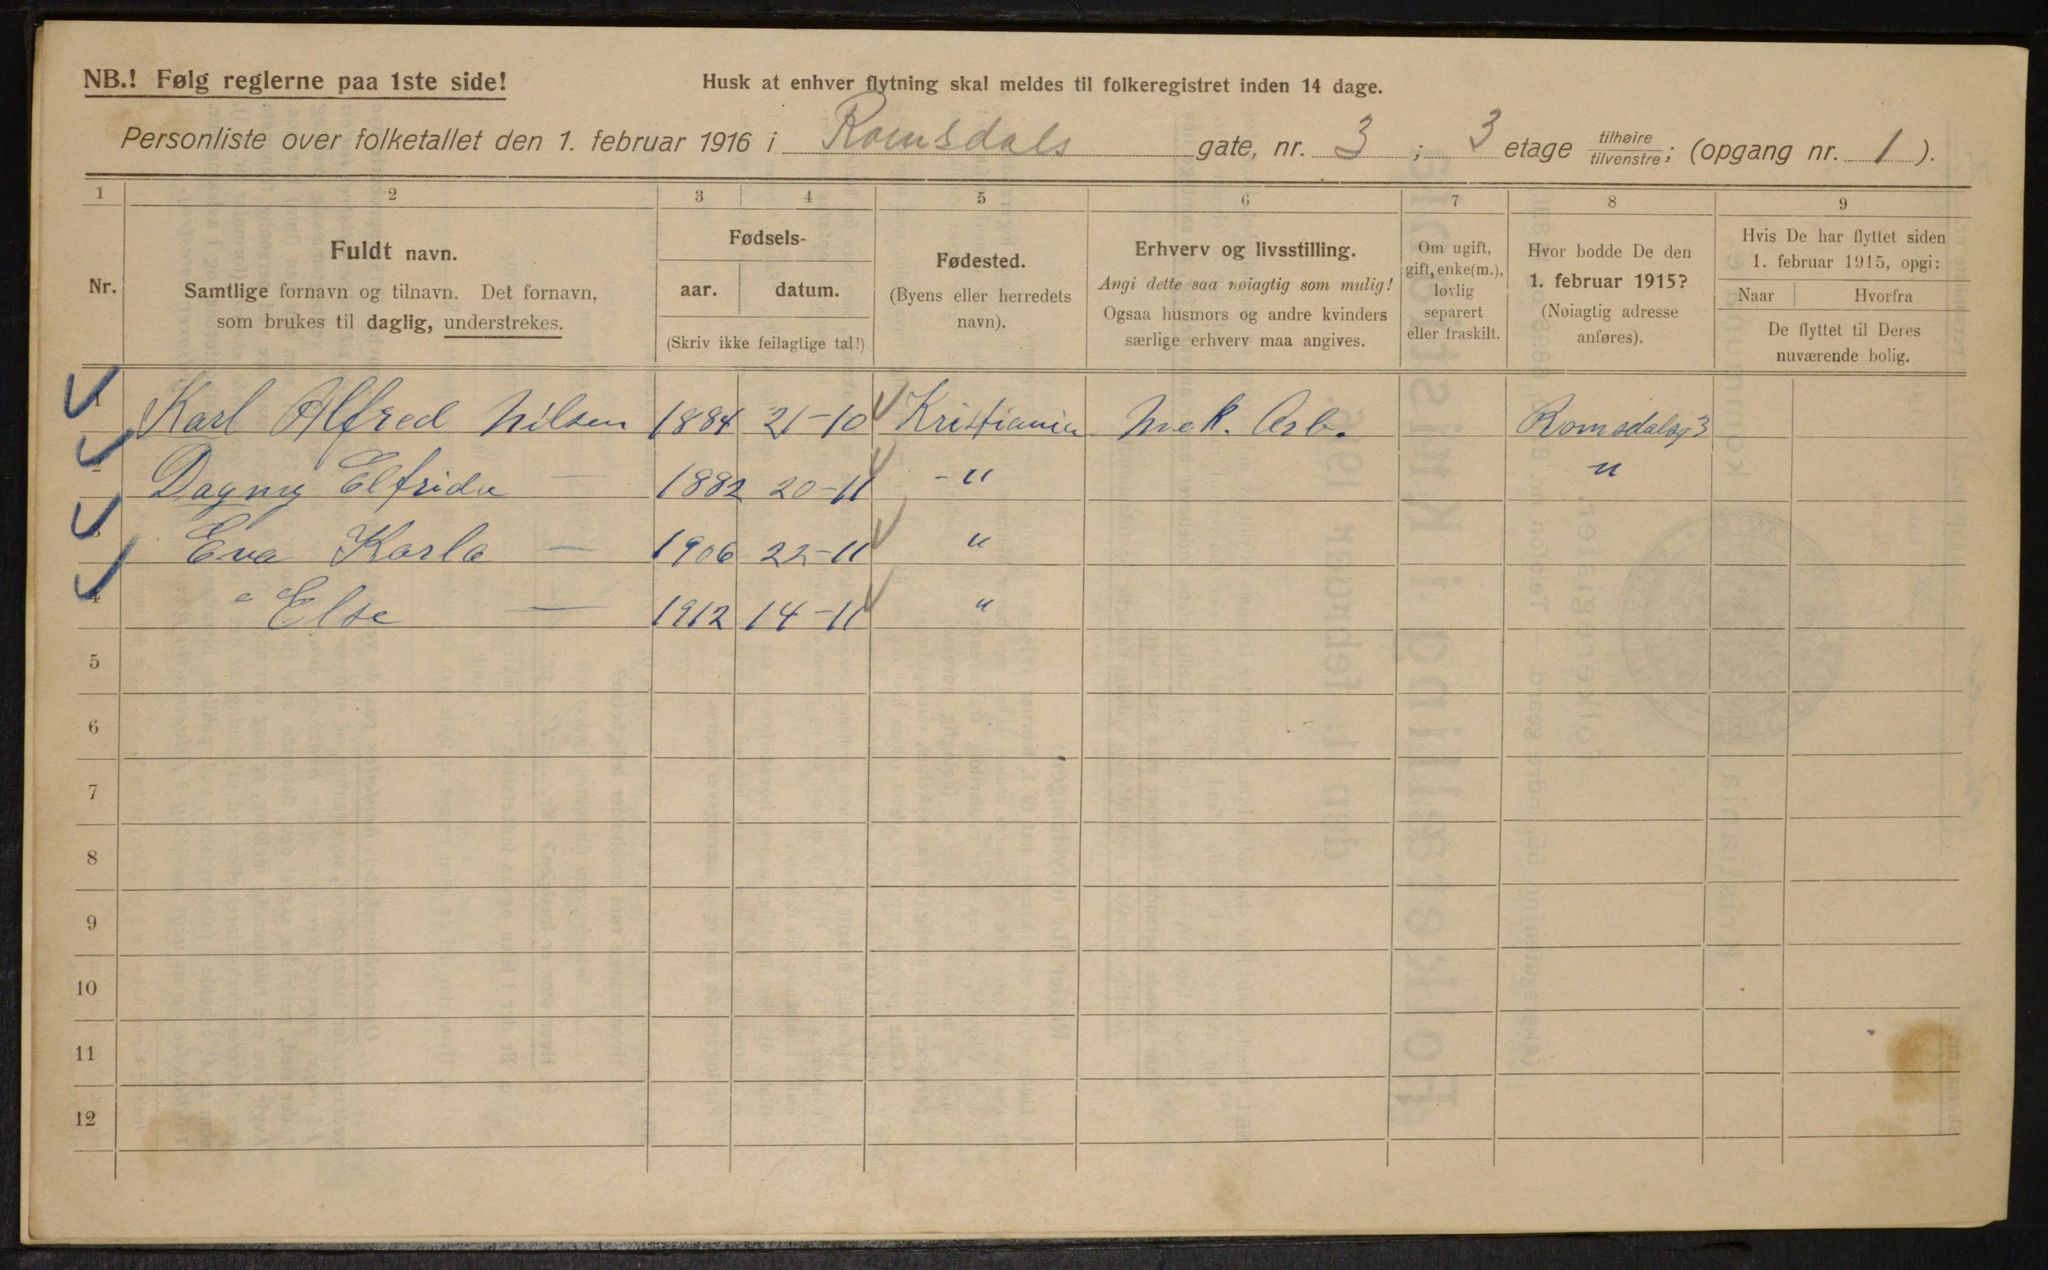 NB.! Følg reglerne paa 1ste side!
Husk at enhver flytning skal meldes til folkeregistret inden 14 dage.
Personliste over folketallet den 1. februar 1916 i Romsdals gate, nr. 3 ; 3 etage tilhøire/tilvenstre; (opgang nr. 1 ).
1 2 3 4 5 6 7 8 9
Nr.
Fuldt navn.
Samtlige fornavn og tilnavn. Det fornavn,
som brukes til daglig, understrekes.
Fødsels-
aar. datum.
(Skriv ikke feilagtige tal!)
Fødested.
(Byens eller herredets
navn).
Erhverv og livsstilling.
Angi dette saa nøiagtig som mulig!
Ogsaa husmors og andre kvinders
særlige erhverv maa angives.
Om ugift,
gift, enke(m.),
lovlig
separert
eller fraskilt.
Hvor bodde De den
1. februar 1915?
(Nøiagtig adresse
anføres).
Hvis De har flyttet siden
1. februar 1915, opgi:
Naar Hvorfra
De flyttet til Deres
nuværende bolig.
1 Karl Alfred Nilsen 1884 21-10 Kristiania Mek. Arb. Romsdalsg 3
2 Dagny Elfrida — 1882 20-11 -" "
3 Eva Karla — 1906 22-11 "
4 " Else — 1912 14-11 "
5
6
7
8
9
10
11
12